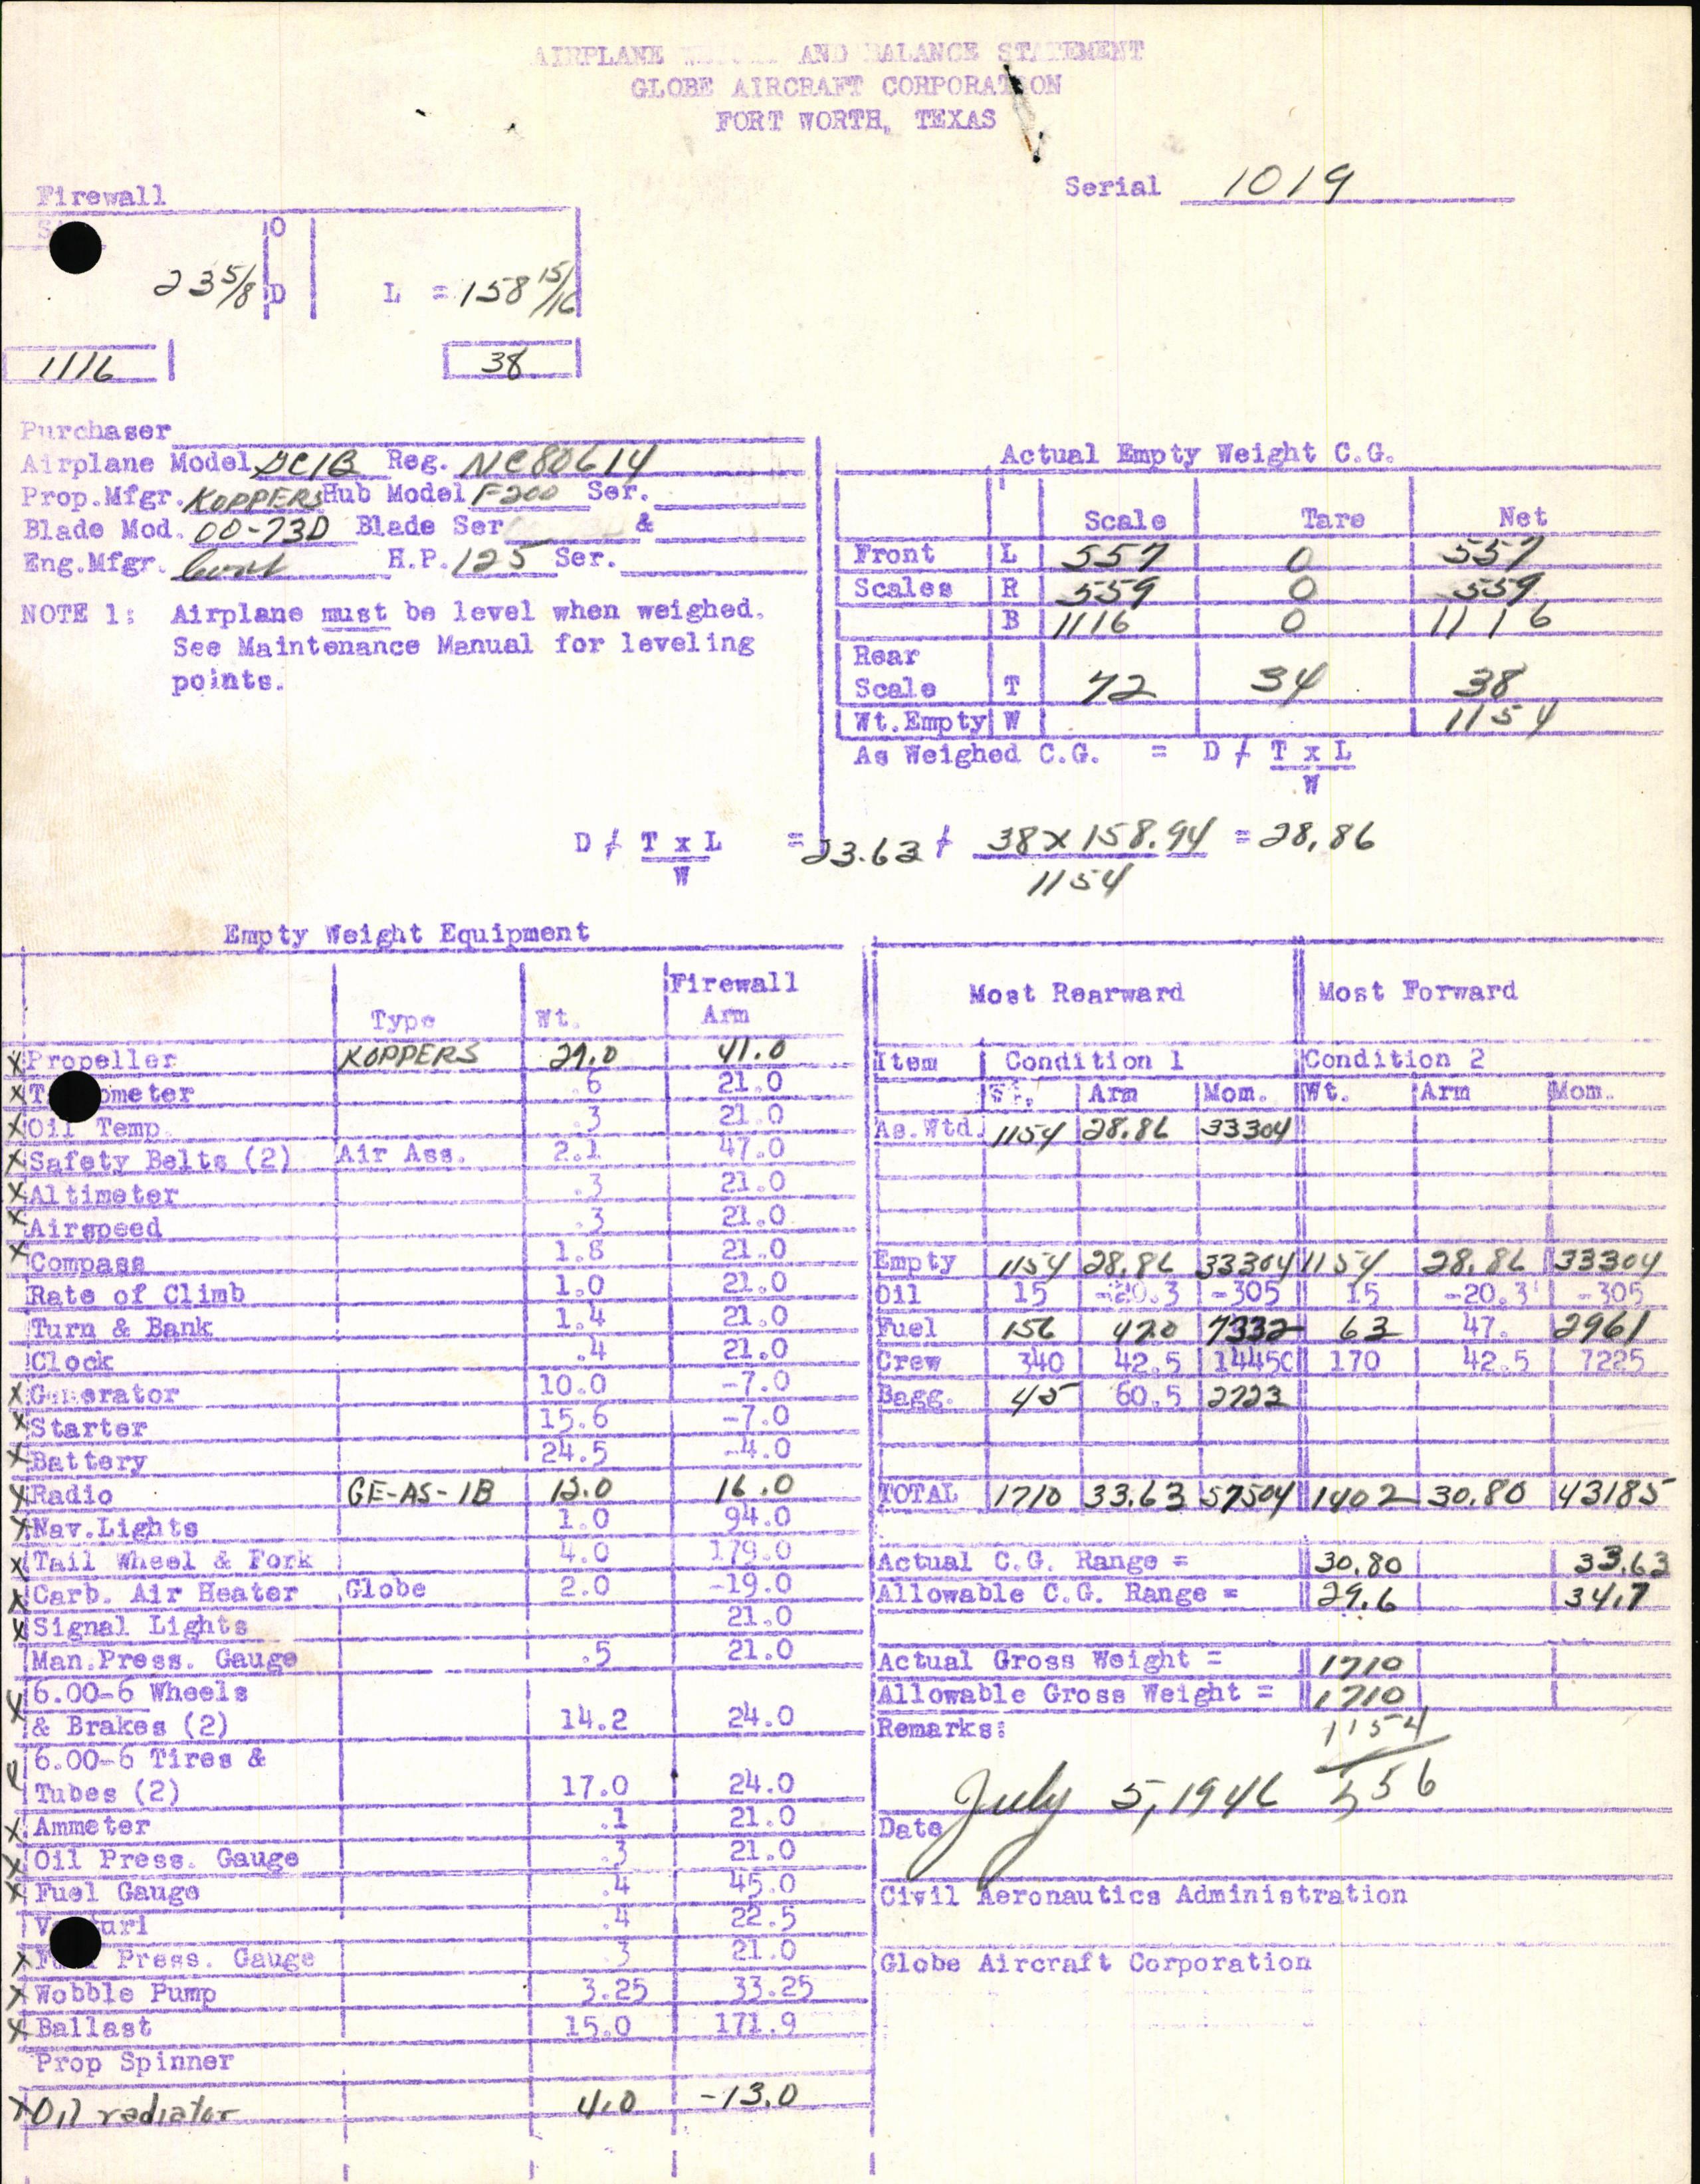 AIRPLANE AND BALANCE STATEMENT
GLOBE AIRCRAFT CORPORATION
FORT WORTH, TEXAS
Serial 1019
Firewall
O
23 5/8 D L = 158 15/16
1116 38
Purchaser
Airplane Model GC1B Reg. NC80614
Prop.Mfgr. KOPPERS Hub Model F200 Ser.
Blade Mod. 00-73D Blade Ser &
Eng.Mfgr. Cont H.P. 125 Ser.
NOTE 1: Airplane must be level when weighed.
See Maintenance Manual for leveling
points.
Actual Empty Weight C.G.
Scale Tare Net
Front L 557 0 557
Scales R 559 0 559
B 1116 0 1116
Rear
Scale T 72 34 38
Wt.Empty W 1154
As Weighed C.G. = D / T x L
W
D / T x L = 23.63 + 38 x 158.94 = 28.86
W 1154
Empty Weight Equipment
Firewall
Type Wt. Arm
X Propeller KOPPERS 29.0 41.0
X T ometer .6 21.0
X Oil Temp. .3 21.0
X Safety Belts (2) Air Ass. 2.1 47.0
X Altimeter .3 21.0
X Airspeed .3 21.0
X Compass 1.8 21.0
Rate of Climb 1.0 21.0
Turn & Bank 1.4 21.0
Clock .4 21.0
X Generator 10.0 -7.0
X Starter 15.6 -7.0
X Battery 24.5 -4.0
X Radio GE-AS-1B 12.0 16.0
X Nav.Lights 1.0 94.0
X Tail Wheel & Fork 4.0 179.0
X Carb. Air Heater Globe 2.0 -19.0
X Signal Lights 21.0
Man.Press. Gauge .5 21.0
X 6.00-6 Wheels
& Brakes (2) 14.2 24.0
6.00-6 Tires &
Tubes (2) 17.0 24.0
X Ammeter .1 21.0
X Oil Press. Gauge .3 21.0
X Fuel Gauge .4 45.0
V turi .4 22.5
X F Press. Gauge .3 21.0
X Wobble Pump 3.25 33.25
X Ballast 15.0 171.9
Prop Spinner
X Oil radiator 4.0 -13.0
Most Rearward Most Forward
Item Condition 1 Condition 2
Wt. Arm Mom. Wt. Arm Mom.
As.Wtd. 1154 28.86 33304
Empty 1154 28.86 33304 1154 28.86 33304
Oil 15 -20.3 -305 15 -20.3 -305
Fuel 156 47.0 7332 63 47. 2961
Crew 340 42.5 14450 170 42.5 7225
Bagg. 45 60.5 2723
TOTAL 1710 33.63 57504 1402 30.80 43185
Actual C.G. Range = 30.80 33.63
Allowable C.G. Range = 29.6 34.7
Actual Gross Weight = 1710
Allowable Gross Weight = 1710
Remarks: 1154
556
Date July 5, 1946
Civil Aeronautics Administration
Globe Aircraft Corporation